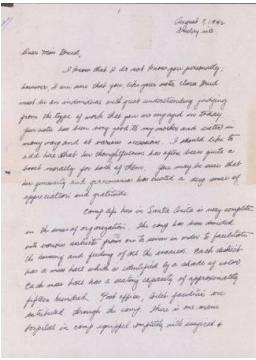 August 7, 1942
Friday nite
Dear Miss Breed,
I know that I do not know you personally,
however, I am sure that you, like your sister Clara Breed
must be an individual with great understanding judging
from the type of work that you are engaged in today
Your sister has been very good to my mother and sister in
many ways and at various occasions. I should like to
add here that her thoughtfulness has often been quite a
boost morally for both of them. You may be sure that
her generosity and graciousness has created a deep sense of
appreciation and gratitude
Camp life here in Santa Anita is very complete
in the sense of organization. The camp has been divided
into various districts from one to seven in order to facilitate
the housing and feeding of all the evacuees. Each district
has a mess hall which is identified by a shade of color.
Each mess hall has a seating capacity of approximately
fifteen hundred. Post office, toilet facilities are
distributed through the camp. There is one main
hospital in camp equipped completely with surgical &